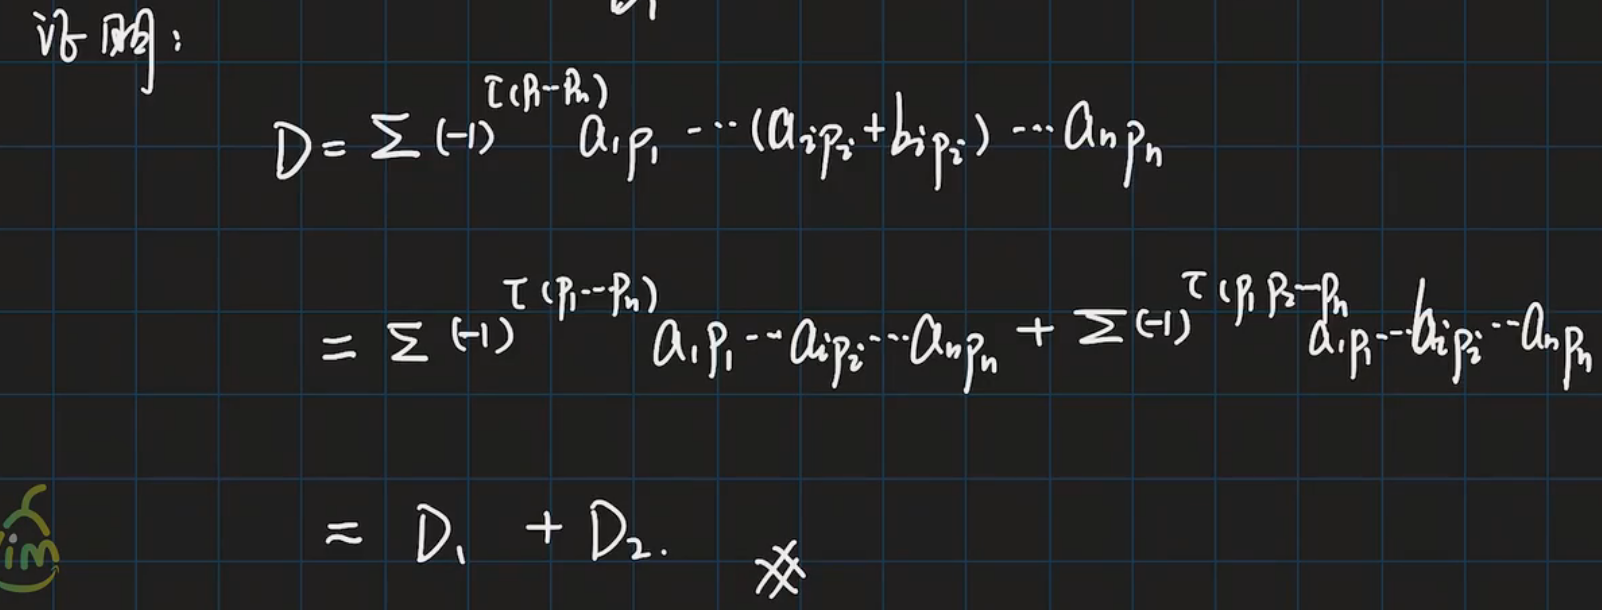 证明：
D = Σ (-1)^{τ(p₁--pₙ)} a₁p₁ ··· (aᵢpᵢ + bᵢpᵢ) ··· aₙpₙ
= Σ (-1)^{τ(p₁--pₙ)} a₁p₁ ··· aᵢpᵢ ··· aₙpₙ + Σ (-1)^{τ(p₁p₂--pₙ} a₁p₁ ··· bᵢpᵢ ··· aₙpₙ
= D₁ + D₂.
im